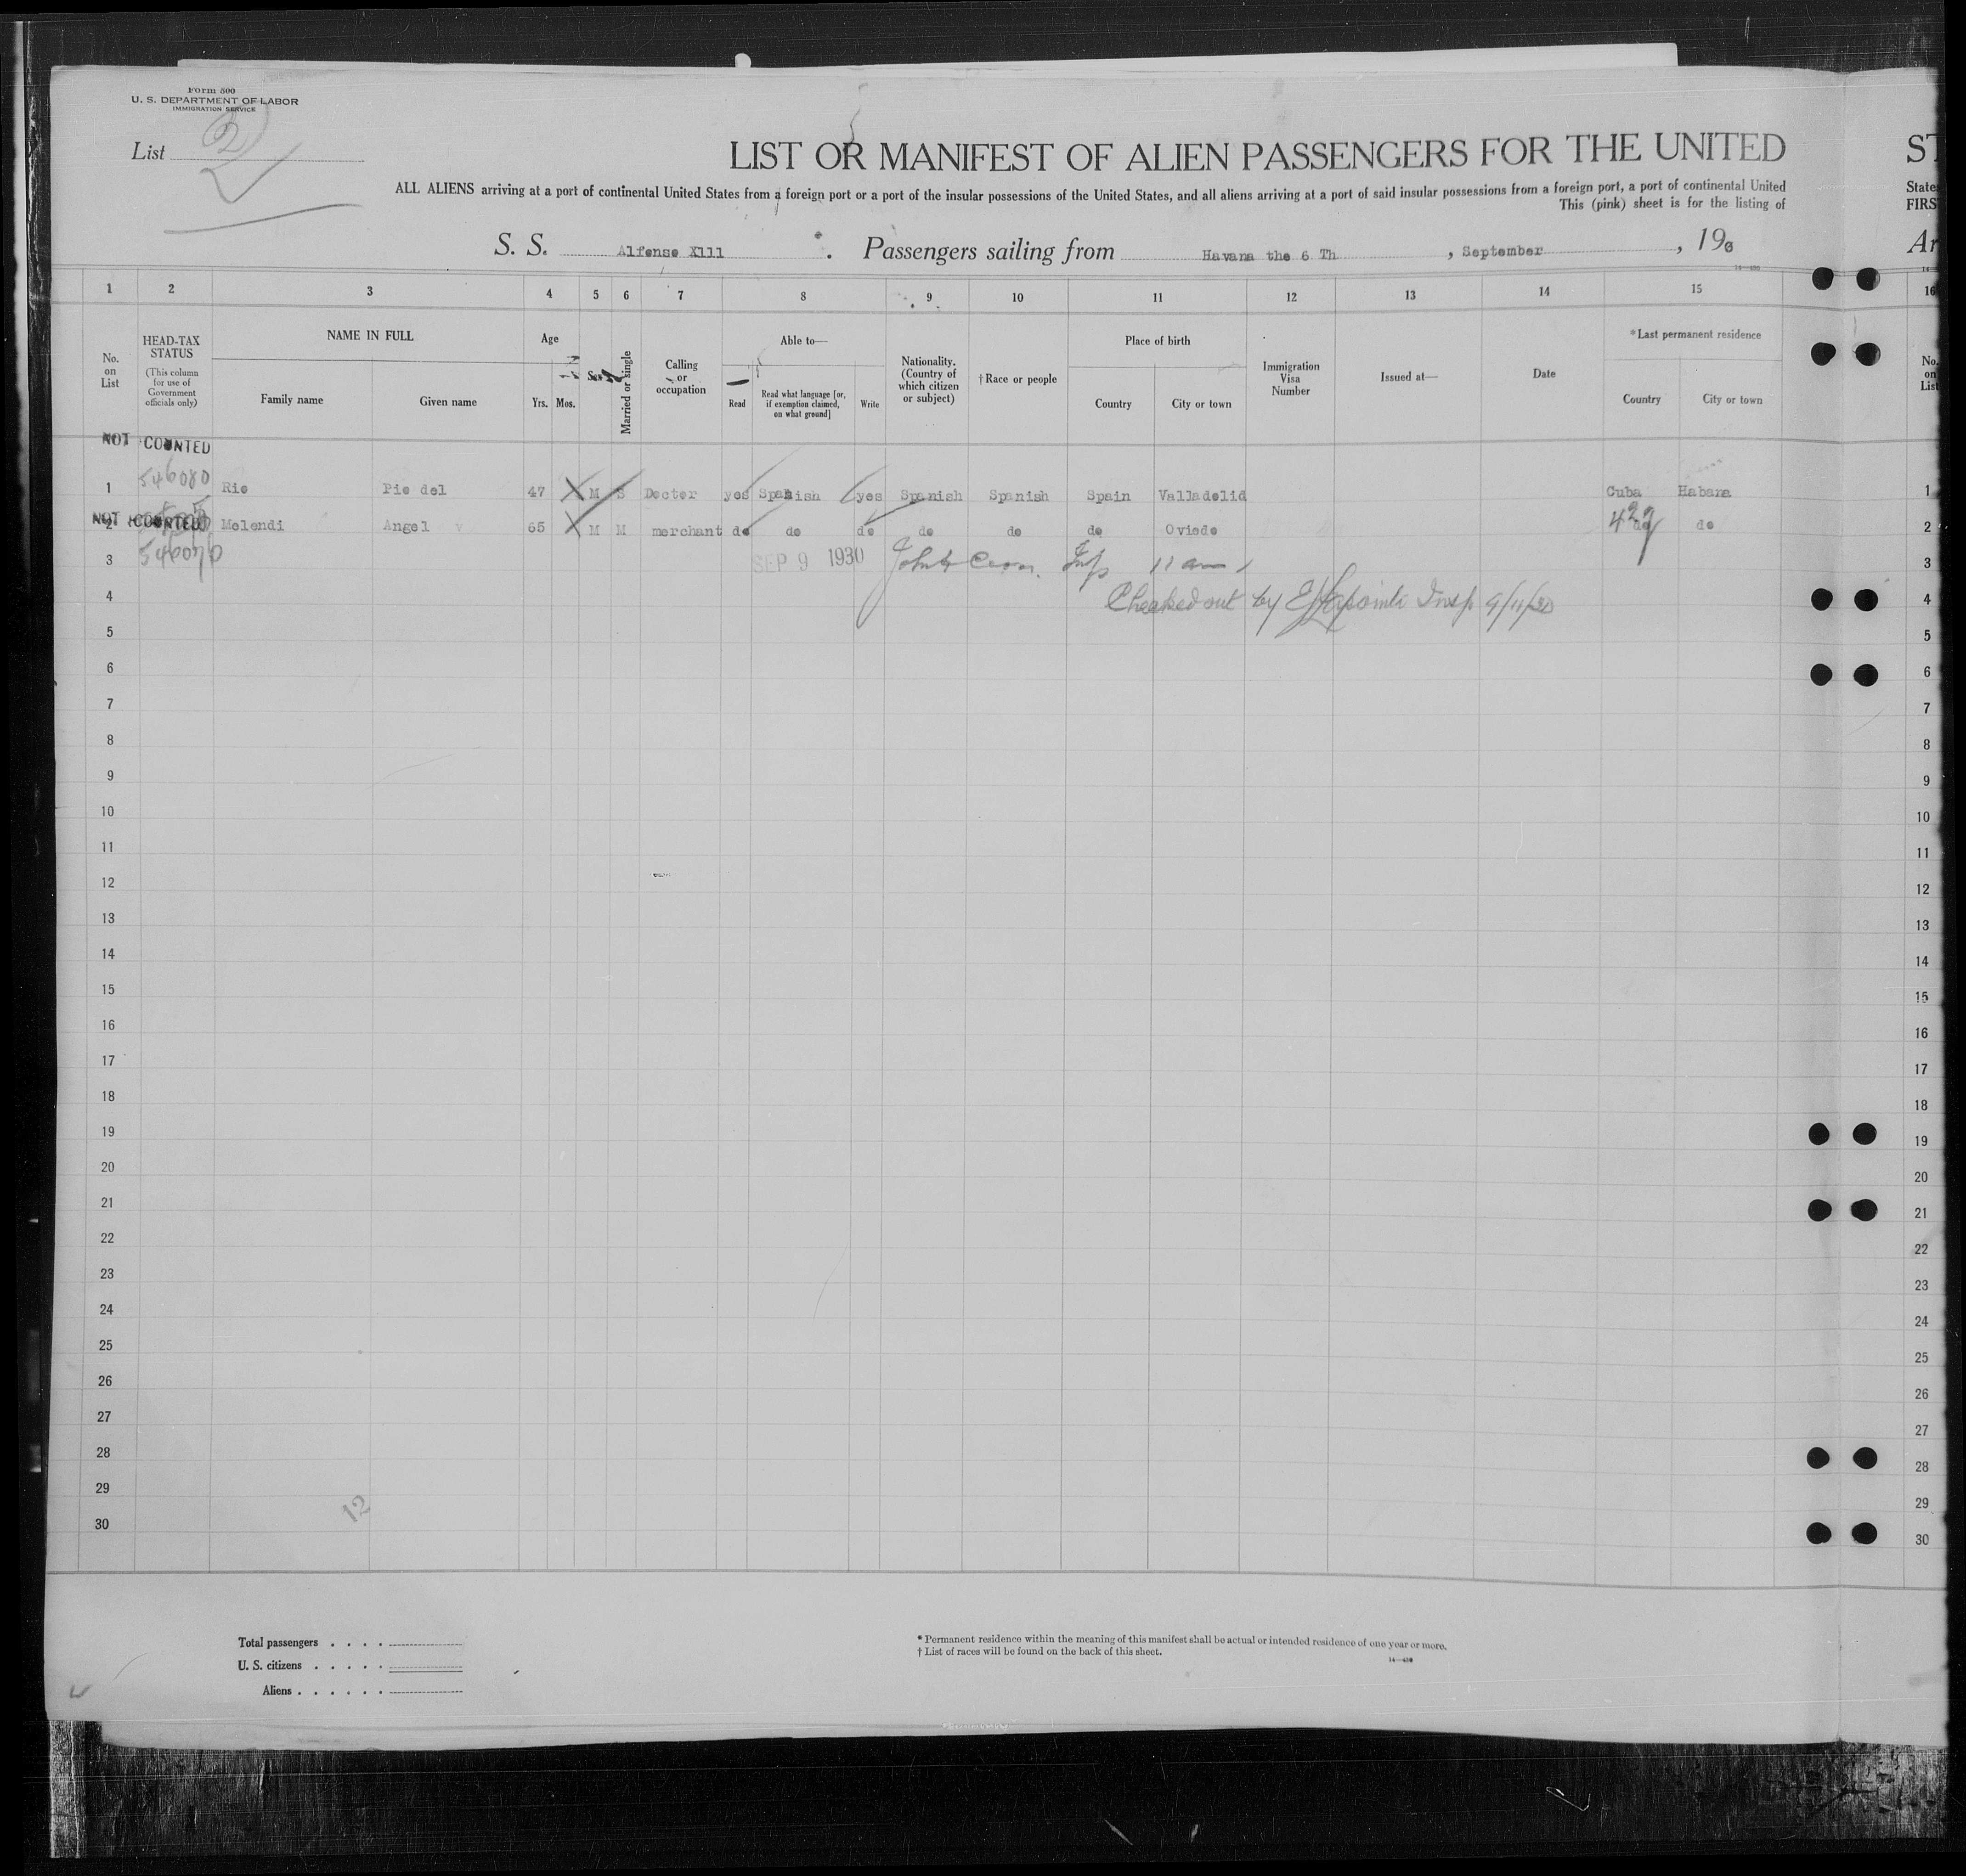 Form 500
U. S. DEPARTMENT OF LABOR
IMMIGRATION SERVICE
List 2
LIST OR MANIFEST OF ALIEN PASSENGERS FOR THE UNITED
ST
ALL ALIENS arriving at a port of continental United States from a foreign port or a port of the insular possessions of the United States, and all aliens arriving at a port of said insular possessions from a foreign port, a port of continental United
State
This (pink) sheet is for the listing of
FIRS
S. S. Alfonso Xlll . Passengers sailing from Havana the 6 Th , September , 19
Ar
1 2 3 4 5 6 7 8 9 10 11 12 13 14 15
16
No. on List
HEAD-TAX STATUS
(This column for use of Government officials only)
NAME IN FULL
Family name
Given name
Age
Yrs. Mos.
Sex
Married or single
Calling or occupation
Able to—
Read
Read what language [or, if exemption claimed, on what ground]
Write
Nationality. (Country of which citizen or subject)
† Race or people
Place of birth
Country
City or town
Immigration Visa Number
Issued at—
Date
* Last permanent residence
Country
City or town
No. on List
NOT COUNTED
546080
1 Rio Pio del 47 M S Doctor yes Spanish yes Spanish Spanish Spain Valladolid Cuba Habana 1
NOT COUNTED
2 Melendi Angel 65 M M merchant do do do do do do Oviedo do do 2
429
3 SEP 9 1930 Insp 11 am
4 Checked out by Insp 9/11/30 4
5 5
6 6
7 7
8 8
9 9
10 10
11 11
12 12
13 13
14 14
15 15
16 16
17 17
18 18
19 19
20 20
21 21
22 22
23 23
24 24
25 25
26 26
27 27
28 28
29 29
30 30
12
Total passengers . . . .
U. S. citizens . . . . .
Aliens . . . . . .
* Permanent residence within the meaning of this manifest shall be actual or intended residence of one year or more.
† List of races will be found on the back of this sheet.